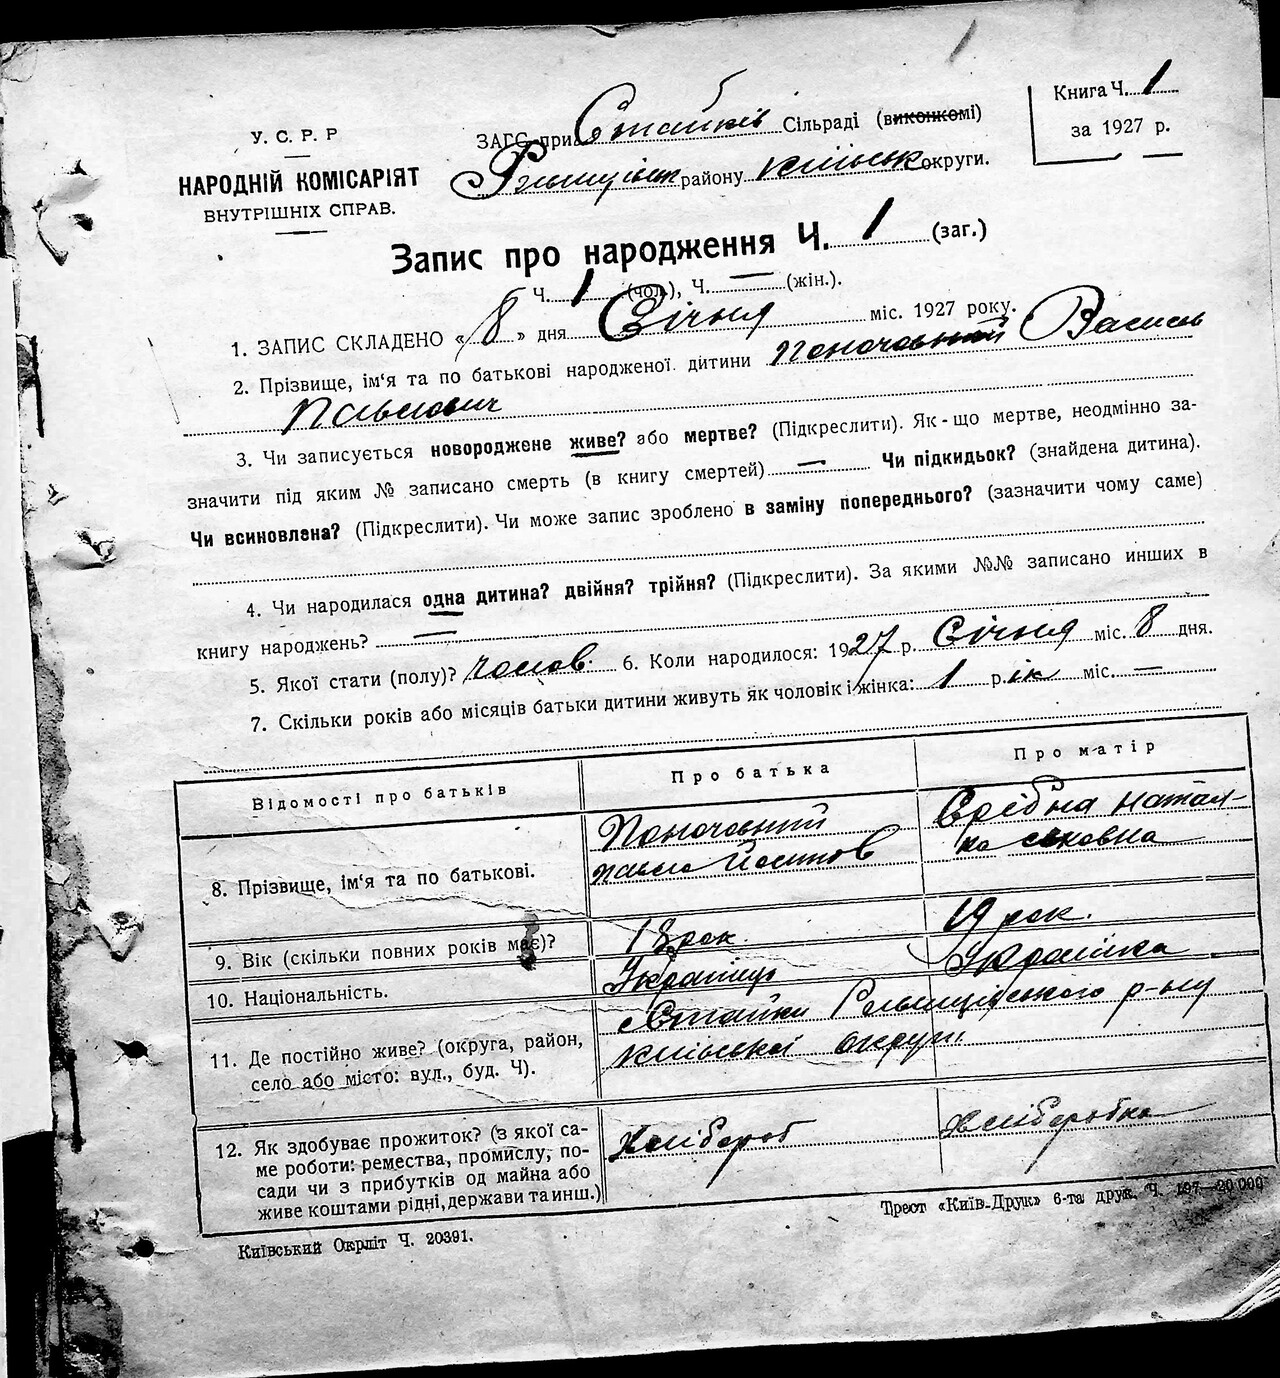 Книга Ч. 1
за 1927 р.
У. С. Р. Р
НАРОДНІЙ КОМІСАРІЯТ
ВНУТРІШНІХ СПРАВ.
ЗАГС при Стайків Сільраді (виконкомі)
району Київськ округи.
Запис про народження Ч. 1 (заг.)
Ч. 1 (чол.), Ч. — (жін.).
1. ЗАПИС СКЛАДЕНО « 8 » дня Січня міс. 1927 року.
2. Прізвище, ім‘я та по батькові народженої дитини Поночовний Василь
Павлович
3. Чи записується новороджене живе? або мертве? (Підкреслити). Як-що мертве, неодмінно за-
значити під яким № записано смерть (в книгу смертей) — Чи підкидьок? (знайдена дитина).
Чи всиновлена? (Підкреслити). Чи може запис зроблено в заміну попереднього? (зазначити чому саме)
4. Чи народилася одна дитина? двійня? трійня? (Підкреслити). За якими №№ записано инших в
книгу народжень? —
5. Якої стати (полу)? чолов. 6. Коли народилося: 1927 р. Січня міс. 8 дня.
7. Скільки років або місяців батьки дитини живуть як чоловік і жінка: 1 рік міс. —
Відомості про батьків
Про батька
Про матір
8. Прізвище, ім‘я та по батькові.
Поночовний
Павло Йосипов
Срібна Натал-
ка
9. Вік (скільки повних років має)?
18 рок.
19 рок.
10. Національність.
Українц
Українка
11. Де постійно живе? (округа, район,
село або місто: вул., буд. Ч).
с Стайки Ржищівського р-ну
Київської округи
12. Як здобуває прожиток? (з якої са-
ме роботи: ремества, промислу, по-
сади чи з прибутків од майна або
живе коштами рідні, держави та инш.)
Хлібороб
Хліборобка
Київський Окрліт Ч. 20391.
Трест «Київ-Друк» 6-та друк. Ч. 197—20 000